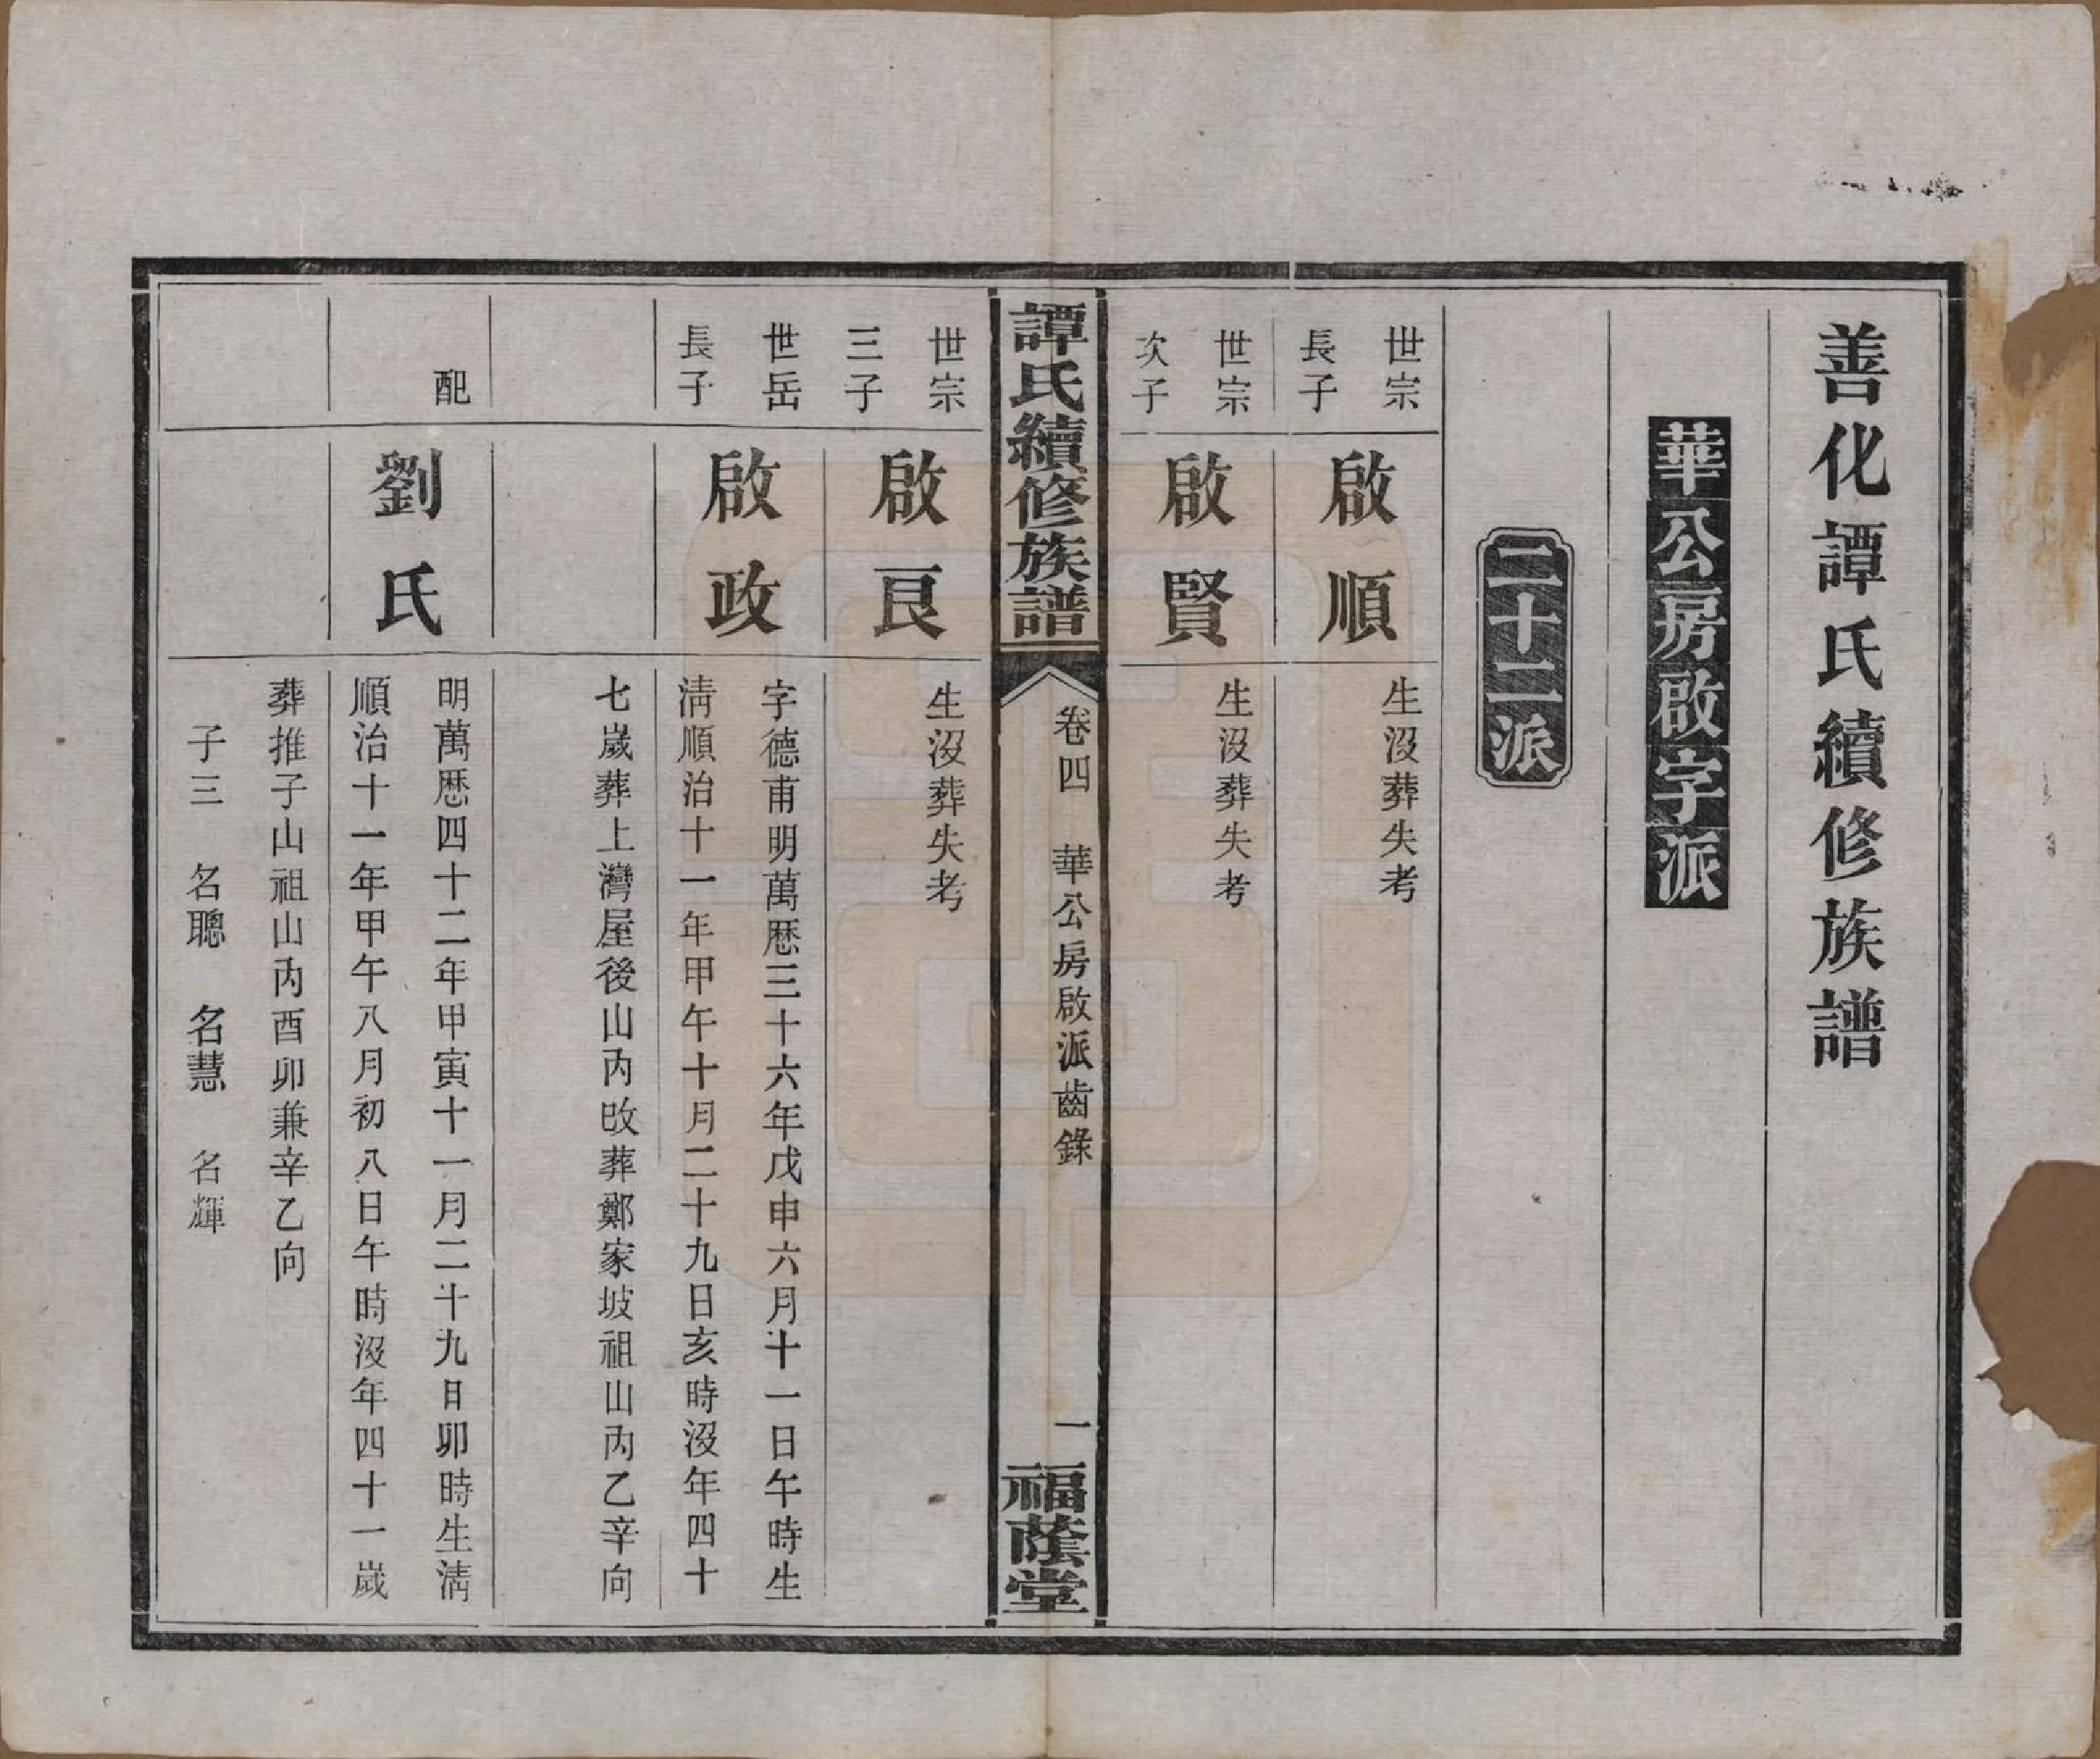 善化譚氏續修族譜
華公房啟字派
二十二派
世宗
長子
啟順
生沒葬失考
世宗
次子
啟賢
生沒葬失考
譚氏續修族譜
卷四 華公房啟派齒錄
一
福蔭堂
世宗
三子
啟良
生沒葬失考
世岳
長子
啟政
字德甫明萬歷三十六年戊申六月十一日午時生
淸順治十一年甲午十月二十九日亥時沒年四十
七歲葬上灣屋後山丙改葬鄭家坡祖山丙乙辛向
配
劉氏
明萬歷四十二年甲寅十一月二十九日卯時生淸
順治十一年甲午八月初八日午時沒年四十一歲
葬推子山祖山丙酉卯兼辛乙向
子三 名聰 名慧 名輝